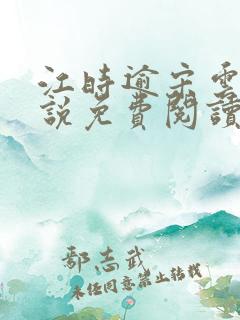 江時逾宋雲
說免費閱讀
鄢志武
未经同意禁止转载